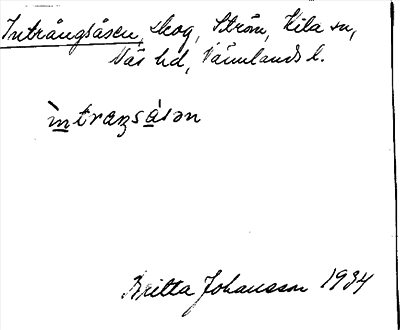 Intrångsåsen, skog, Ström, Kila sn,
Näs hd, Värmlands l.
ìntraŋsàsən
Britta Johansson 1934